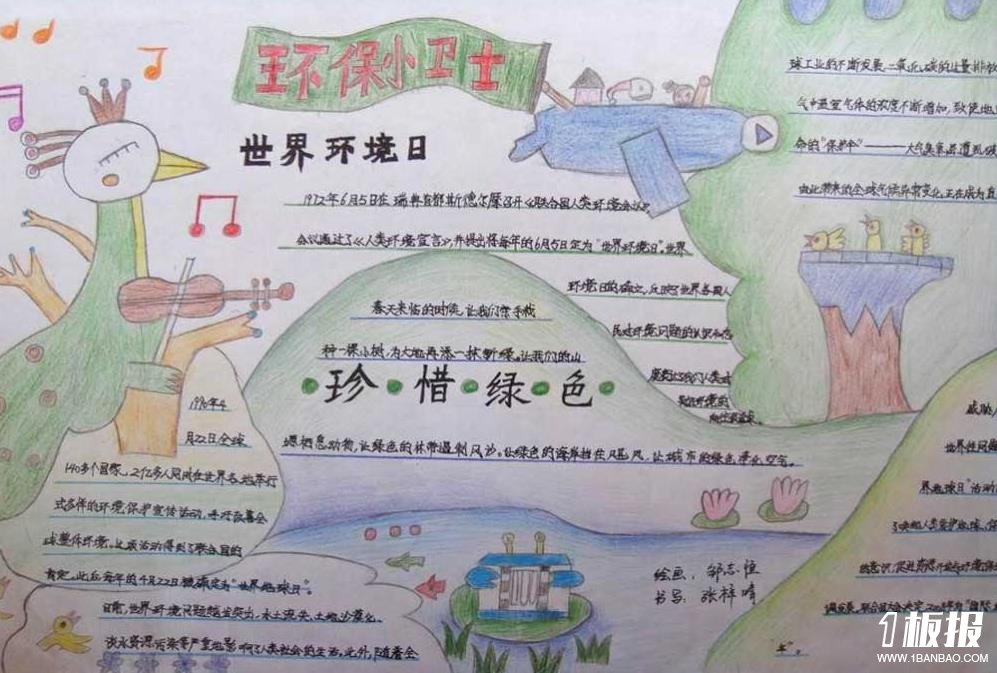 环保小卫士
世界环境日
1972年6月5日在瑞典首都斯德尔摩召开《联合国人类环境会议》
会议通过了《人类环境宣言》,并提出将每年的6月5日定为"世界环境日"。世界
环境日的确立,反映了世界各国人
民对环境问题的认识和态
春天来临的时候,让我们亲手栽
种一棵小树,为大地再添一抹新绿。让我们的山
珍·惜·绿·色
栖息动物,让绿色的林带遏制风沙。让绿色的海岸挡住风,让城市的绿色净化空气。
1990年4
月22日全球
140多个国家、2亿多人同时在世界各地举行
式多样的环境保护宣传活动,呼吁改善全
球整体环境。此项活动得到了联合国的
肯定。此后每年的4月22日被确定为"世界地球日"。
目前,世界环境问题越发突出,水土流失、土地沙漠化、
淡水资源污染等严重地影响了人类社会的生活。此外,随着全
球工业的不断发展,二氧化碳的过量排放
气中温室气体的浓度不断增加,致使地
命的"保护伞"————大气臭氧层遭到破
由此带来的全球气候异常变化,正在成为直
威胁,
世界性问题
界地球日"活动
了唤起人类爱护地球、保
的意识,促进资源开发与环境保
调发展,联合国会决定2008年为"国际
年"。
绘画:邹志恒
书写:张梓晴
1板报
WWW.1BANBAO.COM